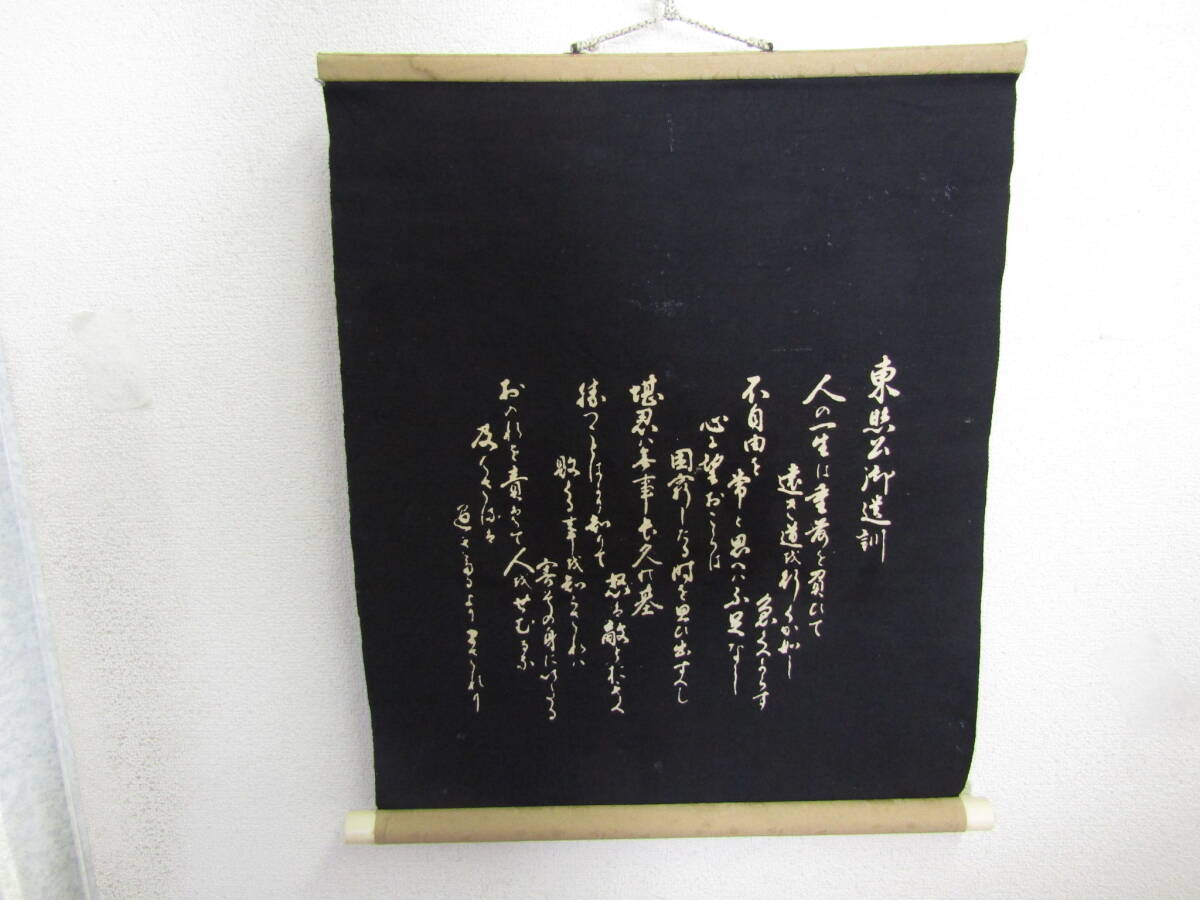 東照公御遺訓
人の一生は重荷を負いて
遠き道を行くが如し
急くへからす
不自由を
常と思へハ不足なし
心に望おこらは
困窮したる時を思ひ出すへし
堪忍ハ無事長久の基
怒は敵とおもへ
勝つことはかり知りて
敗くる事を知らされハ
害その身にいたる
おのれを責めて人をせむるな
及ハさるは
過きたるよりまされり